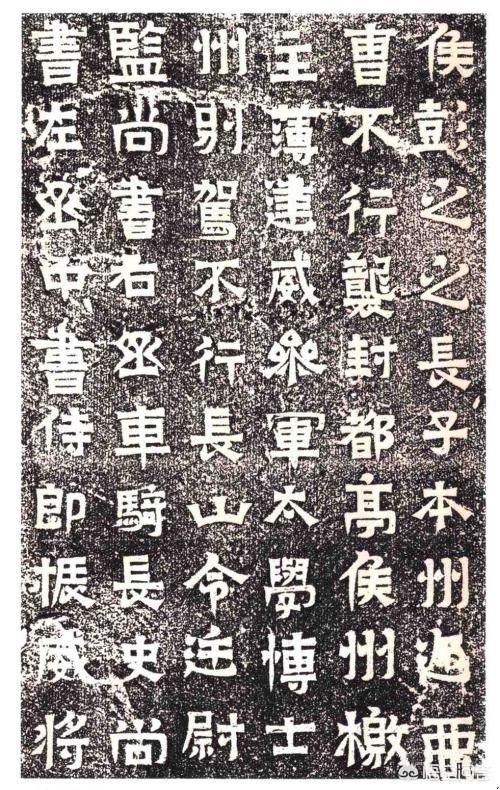 侯彭之之長子本州迎西
曹不行襲封都亭侯州檄
主薄建威參軍太學博士
州別駕不行長山令廷尉
監尚書右丞車騎長史尚
書左丞中書侍郎振威將